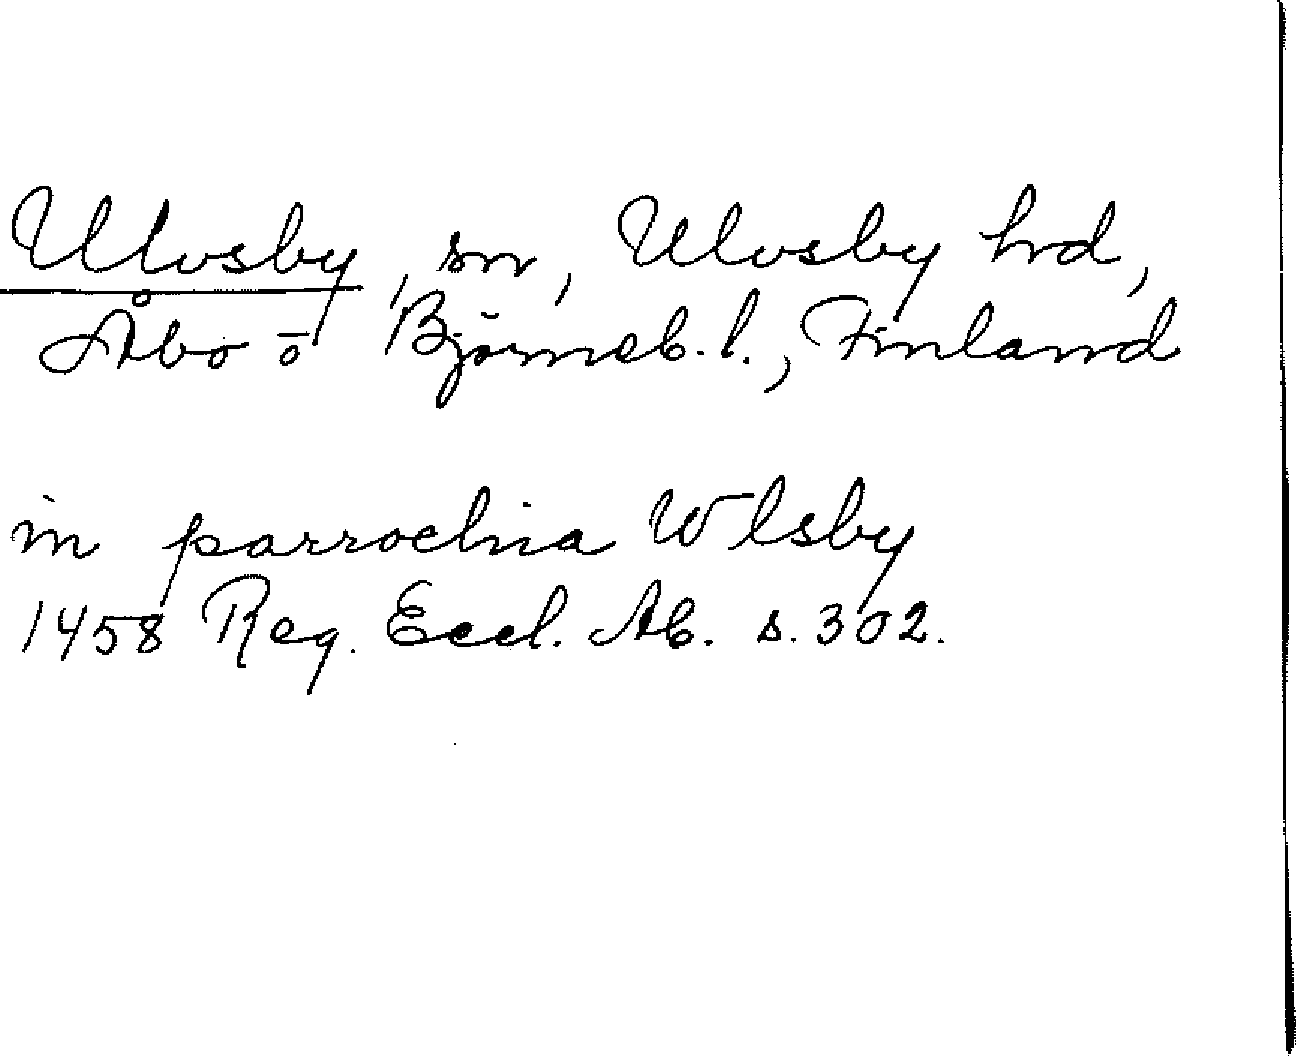 Ulvsby, sn, Ulvsby hrd,
Åbo ō Björneb. l., Finland
in parrochia Wlsby
1458 Reg. Eccl. Ab. s. 302.